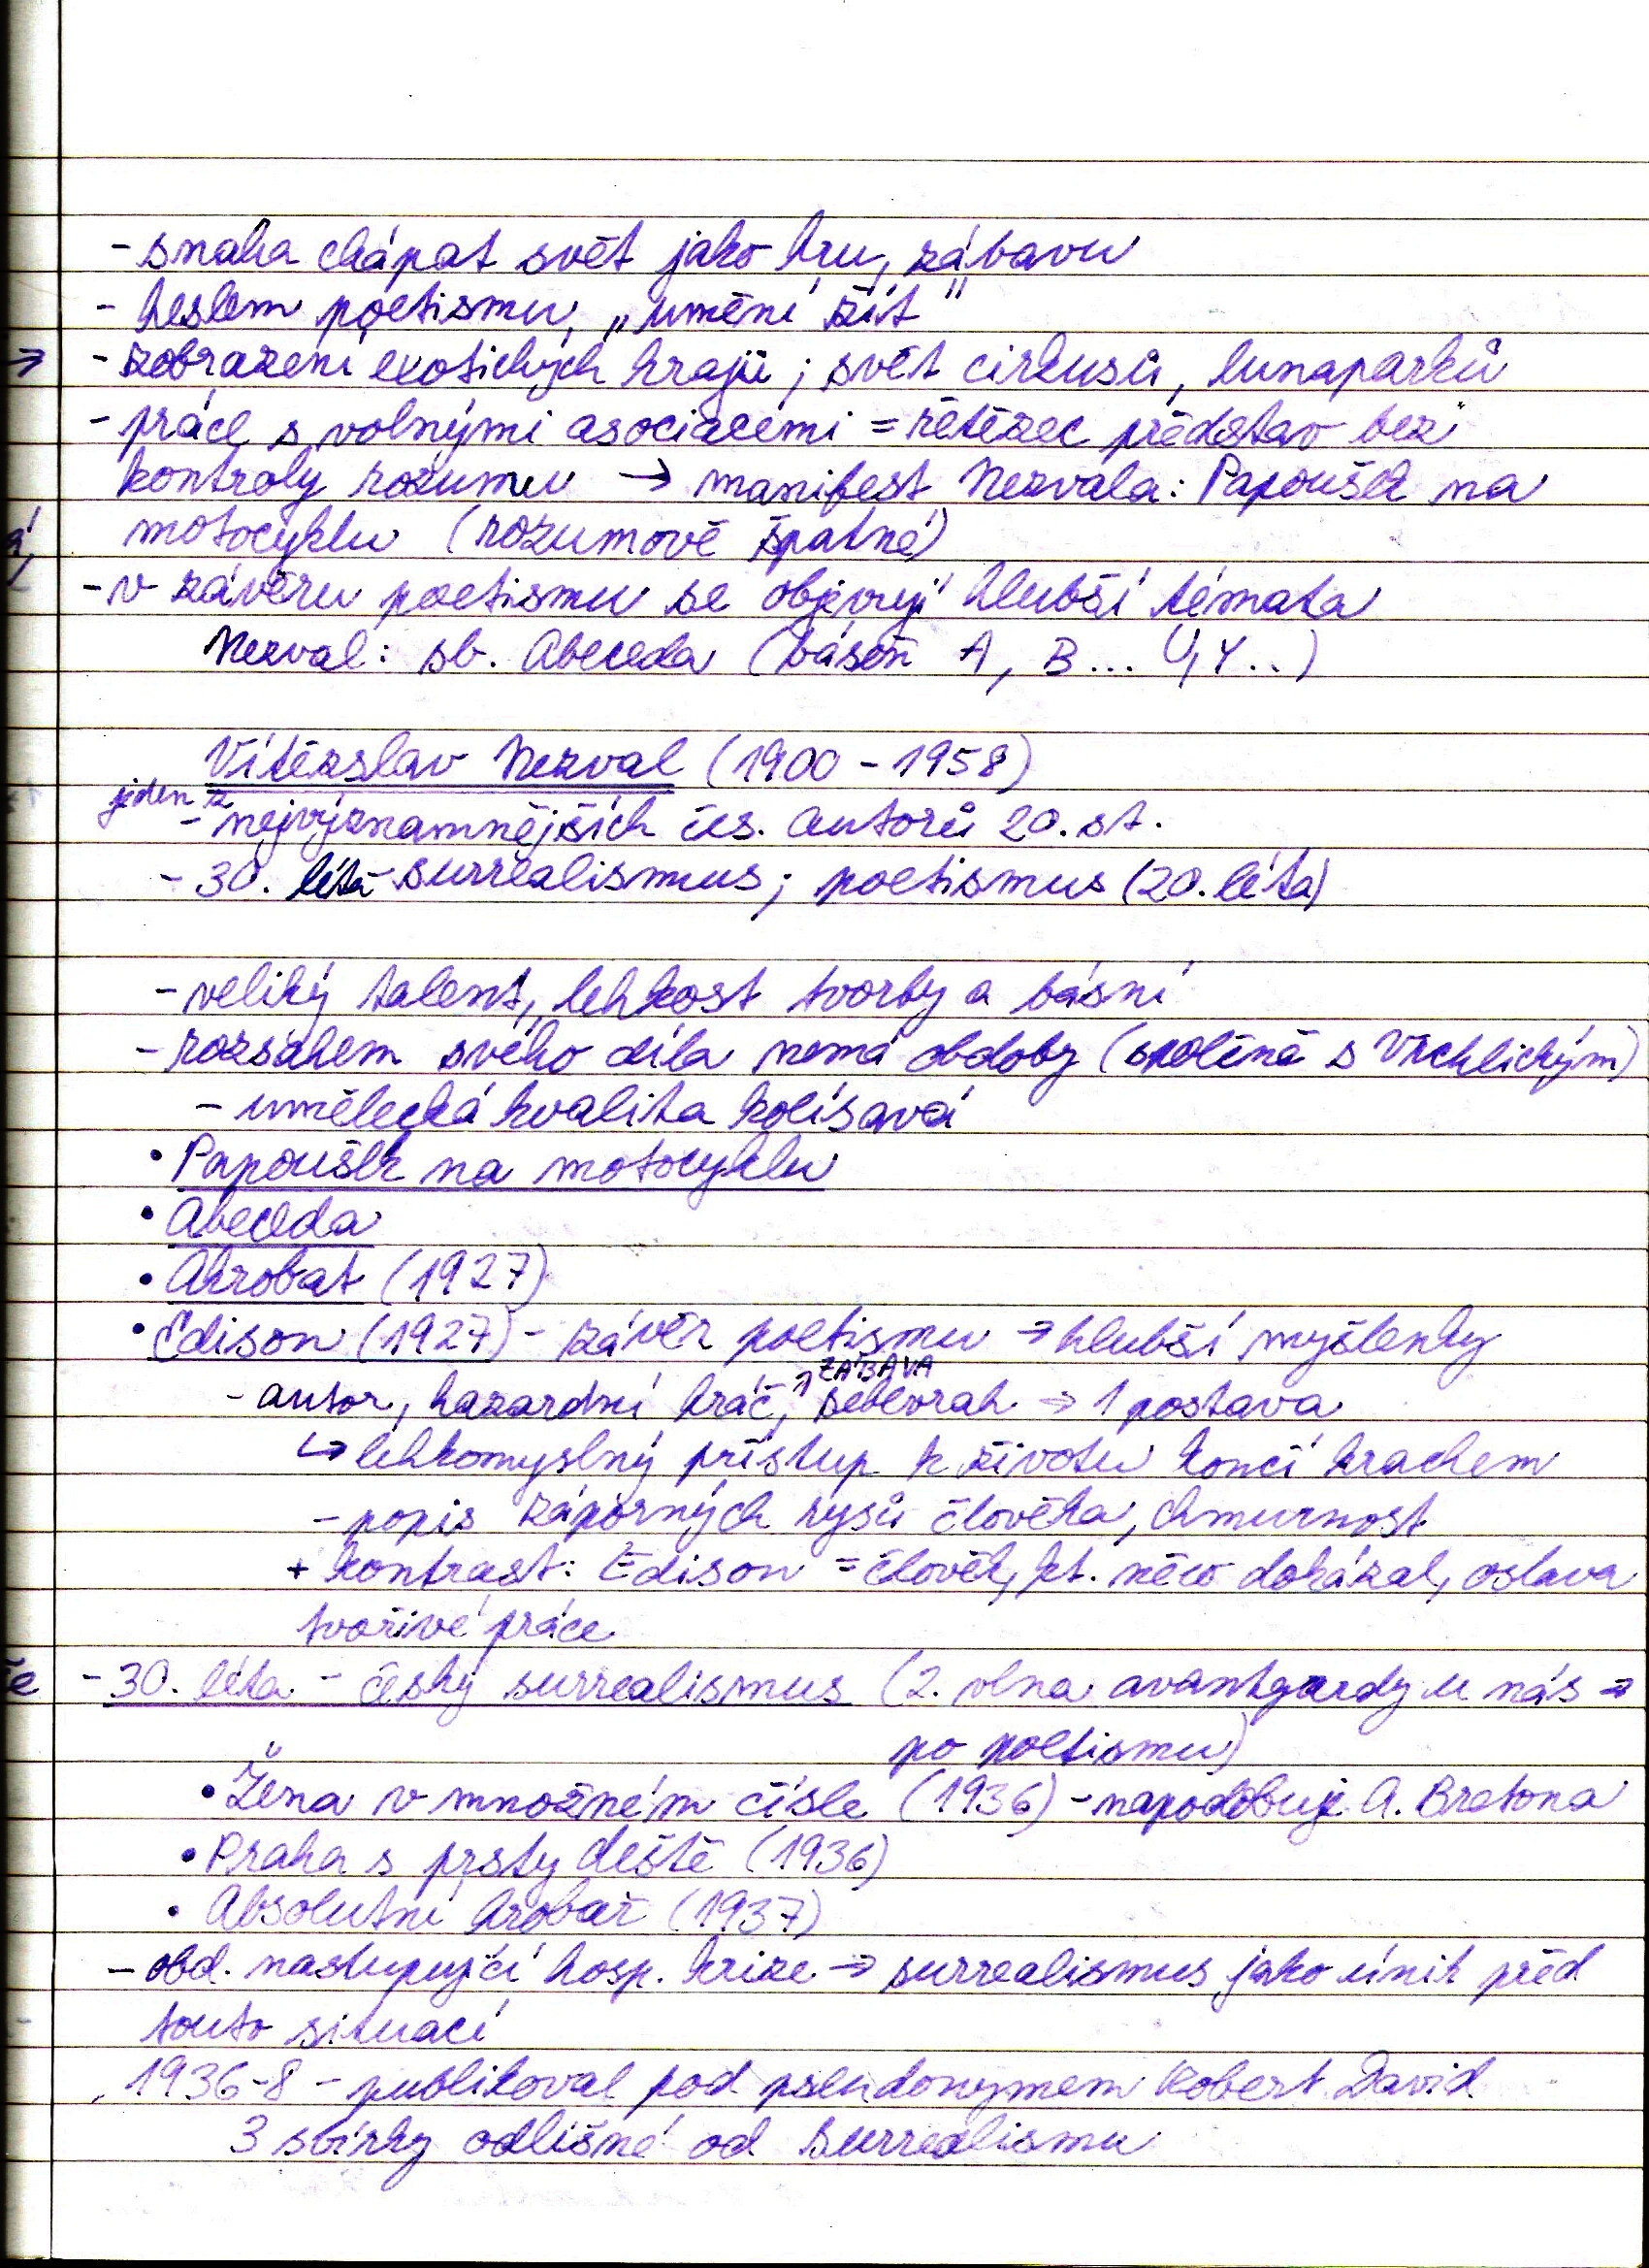 - snaha chápat svět jako hru, zábavu
- heslem poetismu „umění žít"
- zobrazení exotických krajů; svět cirkusů, lunaparků
- práce s volnými asociacemi = řetězec představ bez
kontroly rozumu → manifest Nezvala: Papoušek na
motocyklu (rozumově špatné)
- v závěru poetismu se objevují hlubší témata
Nezval: sb. Abeceda (báseň A, B... U, Y..)
Vítězslav Nezval (1900 - 1958)
jeden z
- nejvýznamnějších čes. autorů 20. st.
- 30. léta - surrealismus; poetismus (20. léta)
- veliký talent, lehkost tvorby a básní
- rozsahem svého díla nemá obdoby (společně s Vrchlickým)
- umělecká kvalita kolísavá
• Papoušek na motocyklu
• Abeceda
• Akrobat (1927)
• Edison (1927) - závěr poetismu → hlubší myšlenky
ZÁBAVA
- autor, hazardní hráč, sebevrah → 1 postava
↳ lehkomyslný přístup k životu končí krachem
- popis záporných rysů člověka, chmurnost
+ kontrast: Edison = člověk, kt. něco dokázal, oslava
tvořivé práce
- 30. léta - český surrealismus (2. vlna avantgardy u nás ⇒
po poetismu)
• Žena v množném čísle (1936) - napodobuje A. Bretona
• Praha s prsty deště (1936)
• Absolutní hrobař (1937)
- obd. nastupující hosp. krize → surrealismus jako únik před
touto situací
1936-8 - publikoval pod pseudonymem Robert David
3 sbírky odlišné od surrealismu